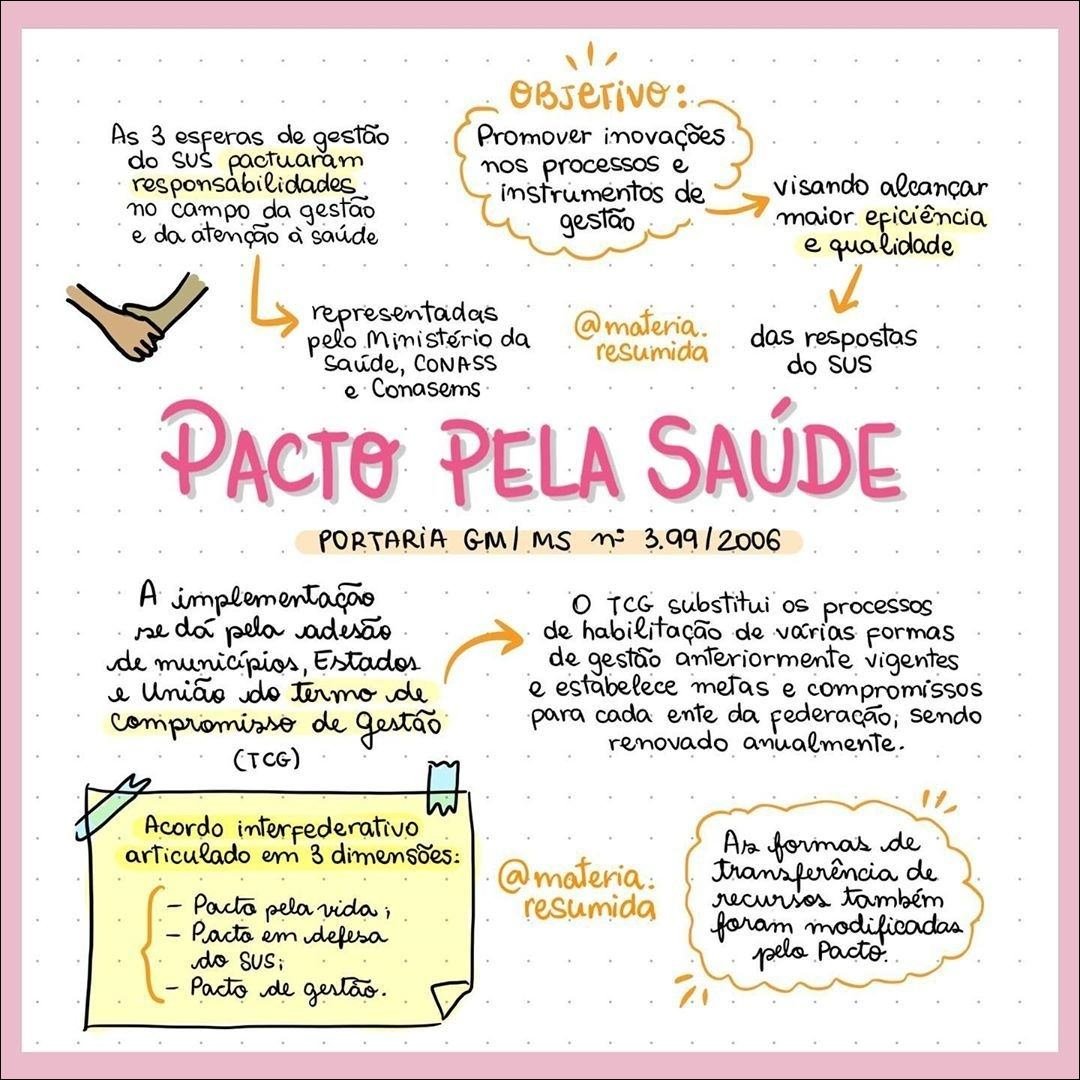 As 3 esferas de gestão
do SUS pactuaram
responsabilidades
no campo da gestão
e da atenção à saúde
representadas
pelo Ministério da
Saúde, CONASS
e Conasems
OBJETIVO:
Promover inovações
nos processos e
instrumentos de
gestão
visando alcançar
maior eficiência
e qualidade
das respostas
do SUS
@materia.
resumida
PACTO PELA SAÚDE
PORTARIA GM/MS nº 3.99/2006
A implementação
se dá pela adesão
de municípios, Estados
e União do termo de
compromisso de Gestão
(TCG)
O TCG substitui os processos
de habilitação de várias formas
de gestão anteriormente vigentes
e estabelece metas e compromissos
para cada ente da federação, sendo
renovado anualmente.
Acordo interfederativo
articulado em 3 dimensões:
- Pacto pela vida;
- Pacto em defesa
do SUS;
- Pacto de gestão.
@materia.
resumida
As formas de
transferência de
recursos também
foram modificadas
pelo Pacto.